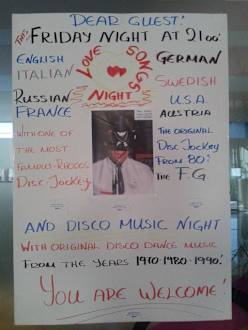 DEAR GUEST!
THIS FRIDAY NIGHT AT 21:00!
LOVE SONGS NIGHT
ENGLISH
ITALIAN
RUSSIAN
FRANCE
GERMAN
SWEDISH
U.S.A.
AUSTRIA
WITH ONE OF
THE MOST
FAMOUS-RHODOS
DISC-JOCKEY
THE ORIGINAL
DISC JOCKEY
FROM 80!
THE F.G
AND DISCO MUSIC NIGHT
WITH ORIGINAL DISCO DANCE MUSIC
FROM THE YEARS 1970-1980-1990!
YOU ARE WELCOME!